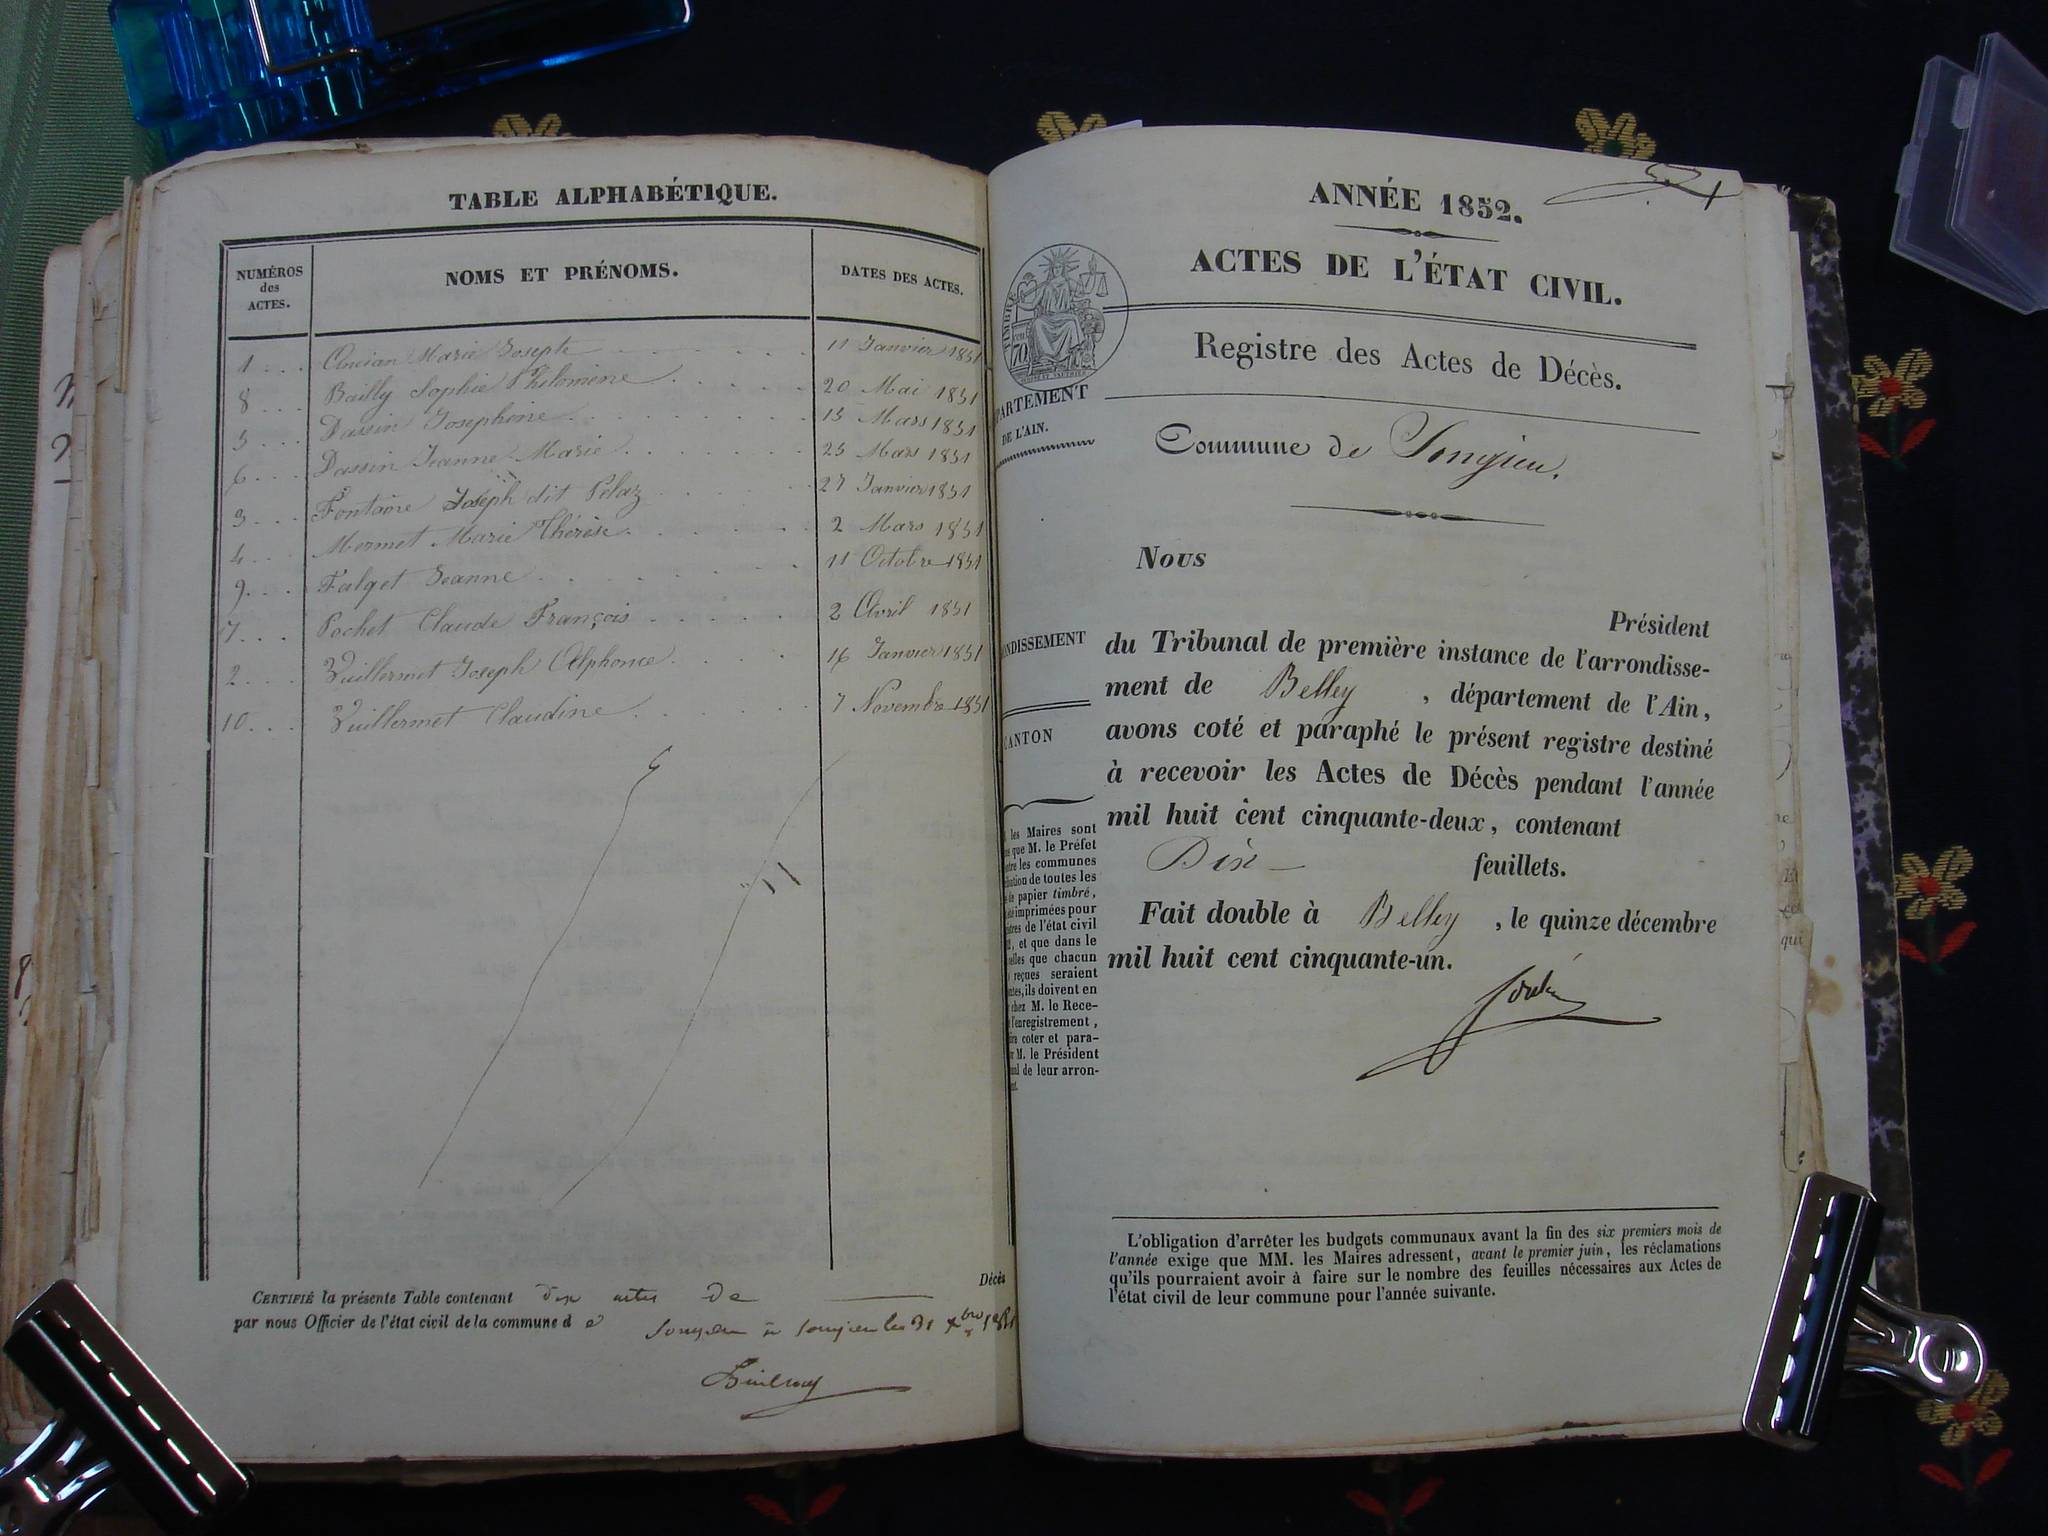 TABLE ALPHABÉTIQUE.
NUMÉROS des ACTES.
NOMS ET PRÉNOMS.
DATES DES ACTES.
1 Ancian Marie Josephte 11 Janvier 1851
8 Bailly Sophie Philomène 20 Mai 1851
5 Dassin Josephine 15 Mars 1851
6 Dassin Jeanne Marie 25 Mars 1851
3 Fontaine Joseph dit Pelaz 27 Janvier 1851
4 Mermet Marie Thérèse 2 Mars 1851
9 Falqet Jeanne 11 Octobre 1851
7 Pochet Claude François 2 Avril 1851
2 Vuillermet Joseph Alphonce 16 Janvier 1851
10 Vuillermet Claudine 7 Novembre 1851
CERTIFIÉ la présente Table contenant dix actes de Décès
par nous Officier de l'état civil de la commune de Songieu à Songieu le 31 Xbre 1851
ANNÉE 1852.
ACTES DE L'ÉTAT CIVIL.
TIMBRE
70
Registre des Actes de Décès.
PARTEMENT
DE L'AIN.
Commune de Songieu.
Nous
Président
du Tribunal de première instance de l'arrondisse-
ment de Belley, département de l'Ain,
avons coté et paraphé le présent registre destiné
à recevoir les Actes de Décès pendant l'année
mil huit cent cinquante-deux, contenant
Dix feuillets.
Fait double à Belley, le quinze décembre
mil huit cent cinquante-un.
NDISSEMENT
CANTON
les Maires sont
que M. le Préfet
les communes
de toutes les
de papier timbré,
imprimées pour
de l'état civil
, et que dans le
elles que chacun
reçues seraient
, ils doivent en
chez M. le Rece-
l'enregistrement,
coter et para-
M. le Président
de leur arron-
L'obligation d'arrêter les budgets communaux avant la fin des six premiers mois de
l'année exige que MM. les Maires adressent, avant le premier juin, les réclamations
qu'ils pourraient avoir à faire sur le nombre des feuilles nécessaires aux Actes de
l'état civil de leur commune pour l'année suivante.
qui